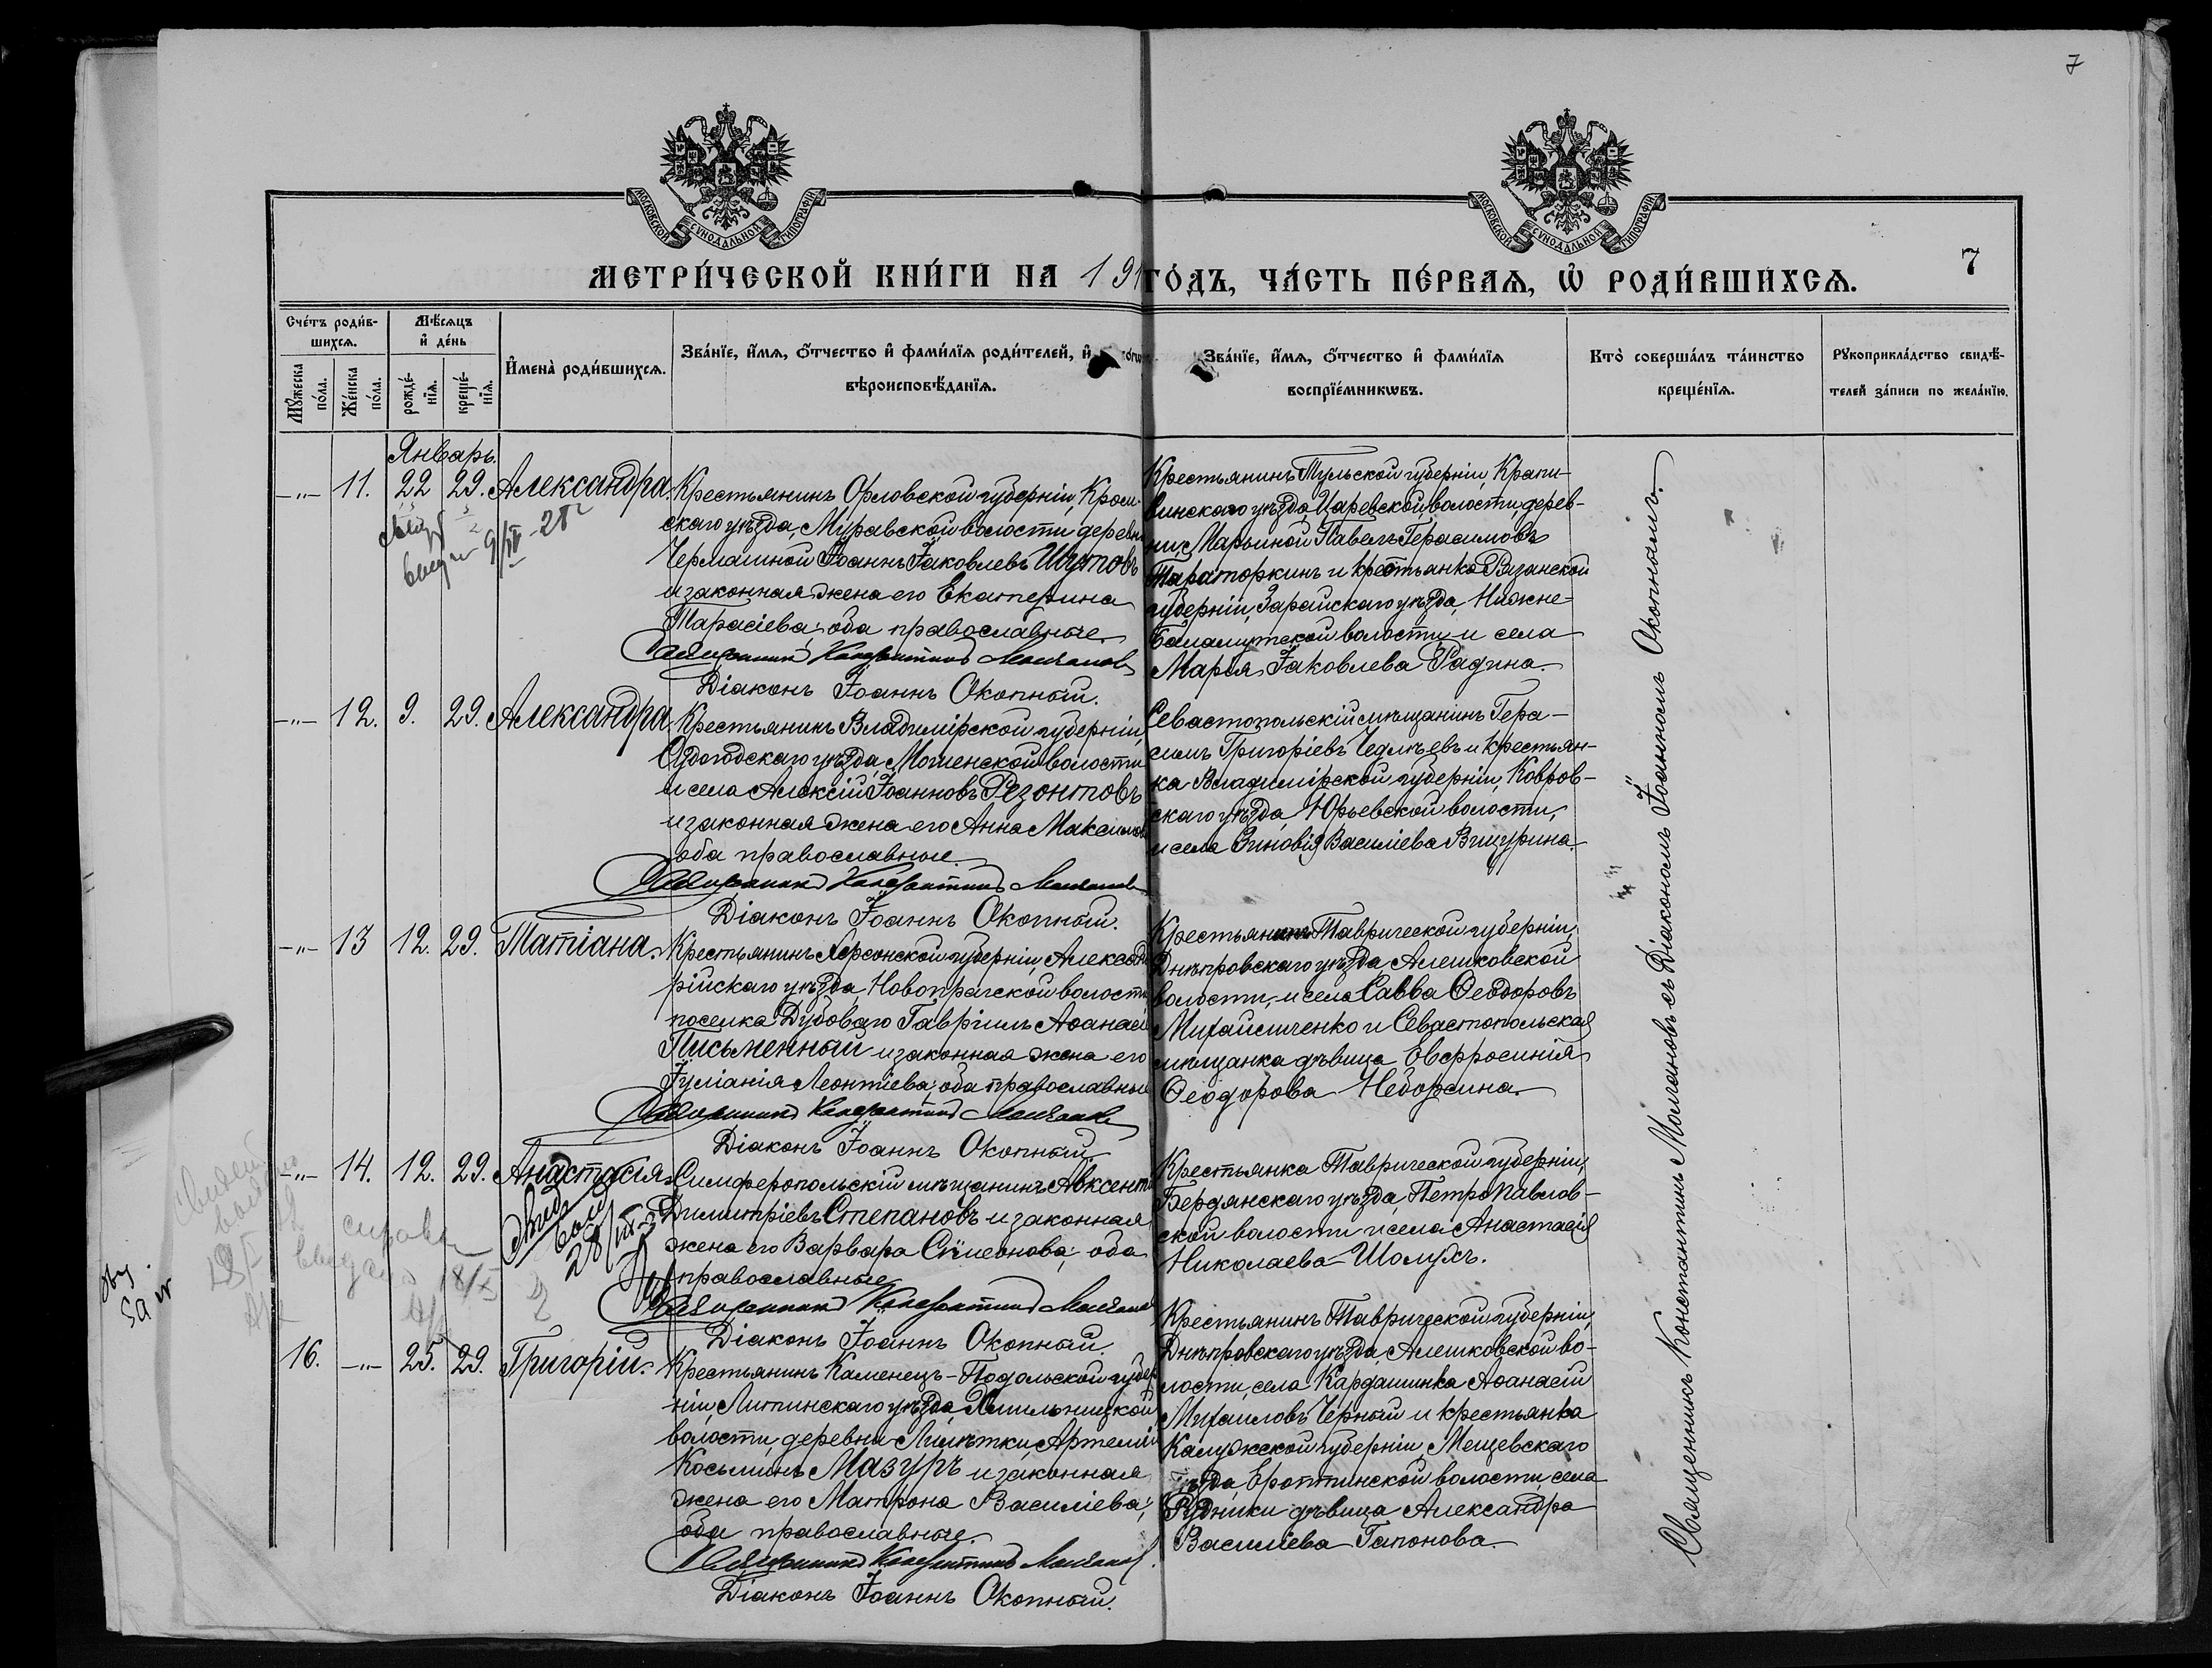 7
МОСКОВСКОЙ СѴНОДАЛЬНОЙ ТИПОГРАФІИ
МОСКОВСКОЙ СѴНОДАЛЬНОЙ ТИПОГРАФІИ
МЕТРИ́ЧЕСКОЙ КНИ́ГИ НА 191 ГО́ДЪ, ЧА́СТЬ ПЕ́РВАѦ, Ѡ҆ РОДИ́ВШИХСѦ.
7
Сче́тъ роди́в-
шихсѧ.
Мꙋ́жеска по́ла.
Же́нска по́ла.
Мѣ́сѧцъ и҆ де́нь
рожде́-нїѧ.
креще́-нїѧ.
И҆мена̀ роди́вшихсѧ.
Зва́нїе, и҆́мѧ, ѻ҆́тчество и҆ фами́лїѧ роди́телей, и҆
вѣроисповѣ́данїѧ.
Зва́нїе, и҆́мѧ, ѻ҆́тчество и҆ фами́лїѧ
воспрїе́мникѡвъ.
Кто̀ соверша́лъ та́инство
креще́нїѧ.
Рꙋкоприкла́дство свидѣ́-
телей за́писи по жела́нїю.
Январь.
-"- 11. 22 29. Александра.
Крестьянинъ Орловской губерніи, Кром-
скаго уѣзда, Муравской волости деревни
Чермашной Іоаннъ Іаковлевъ Шутовъ
и законная жена его Екатерина
Тарасіева; оба православные.
Священникъ Константинъ Молчановъ
Діаконъ Іоаннъ Окопный.
Крестьянинъ Тульской губерніи, Крапи-
винскаго уѣзда Царевской волости, дерев-
ни Марьиной Павелъ Герасимовъ
Тараторкинъ и крестьянка Рязанской
губерніи, Зарайскаго уѣзда, Нижне-
Баламутской волости и села
Марія Іаковлева Радина.
-"- 12. 9. 29. Александра
Крестьянинъ Владимірской губерніи,
Судогодскаго уѣзда, Мошенской волости
и села Алексій Іоанновъ Резонтовъ
и законная жена его Анна Максимова
оба православные.
Священникъ Константинъ Молчановъ
Діаконъ Іоаннъ Окопный.
Севастопольскій мѣщанинъ Гера-
симъ Григоріевъ Чедмѣевъ и крестьян-
ка Владимірской губерніи, Ковров-
скаго уѣзда, Юрьевской волости,
и села Зиновія Василіева Вицурина.
-"- 13 12. 29. Татіана.
Крестьянинъ Херсонской губерніи, Александ
рійскаго уѣзда, Новопражской волости
поселка Дубоваго Гавріилъ Аѳанасіе
Письменный и законная жена его
Іуліанія Леонтіева; оба православные
Священникъ Константинъ Молчановъ
Діаконъ Іоаннъ Окопный.
Крестьянинъ Таврической губерніи,
Днѣпровскаго уѣзда, Алешковской
волости, и села Савва Ѳеодоровъ
Михайличенко и Севастопольская
мѣщанка дѣвица Евфросинія
Ѳеодорова Небоженна.
-"- 14. 12. 29. Анастасія.
Симферопольскій мѣщанинъ Авксенті
Димитріевъ Степановъ и законная
жена его Варвара Сѵмеонова; оба
православные
Священникъ Константинъ Молчановъ
Діаконъ Іоаннъ Окопный.
Крестьянка Таврической губерніи,
Бердянскаго уѣзда, Петропавлов-
ской волости и села Анастасія
Николаева Шолухъ.
16. -"- 25. 29. Григорій.
Крестьянинъ Каменецъ-Подольской губер
ніи, Литинскаго уѣзда, Хмильницкой
волости, деревни Лилѣтки Артемій
Косьминъ Мазуръ и законная
жена его Матрона Василіева;
оба православные.
Священникъ Константинъ Молчановъ.
Діаконъ Іоаннъ Окопный.
Крестьянинъ Таврической губерніи,
Днѣпровскаго уѣзда, Алешковской во-
лости, села Кардашинка Аѳанасій
Михаиловъ Черный и крестьянка
Калужской губерніи, Мещевскаго
уѣзда, села
Рудники дѣвица Александра
Василіева Гапонова.
Священникъ Константинъ Молчановъ съ Діакономъ Іоанномъ Окопнымъ.